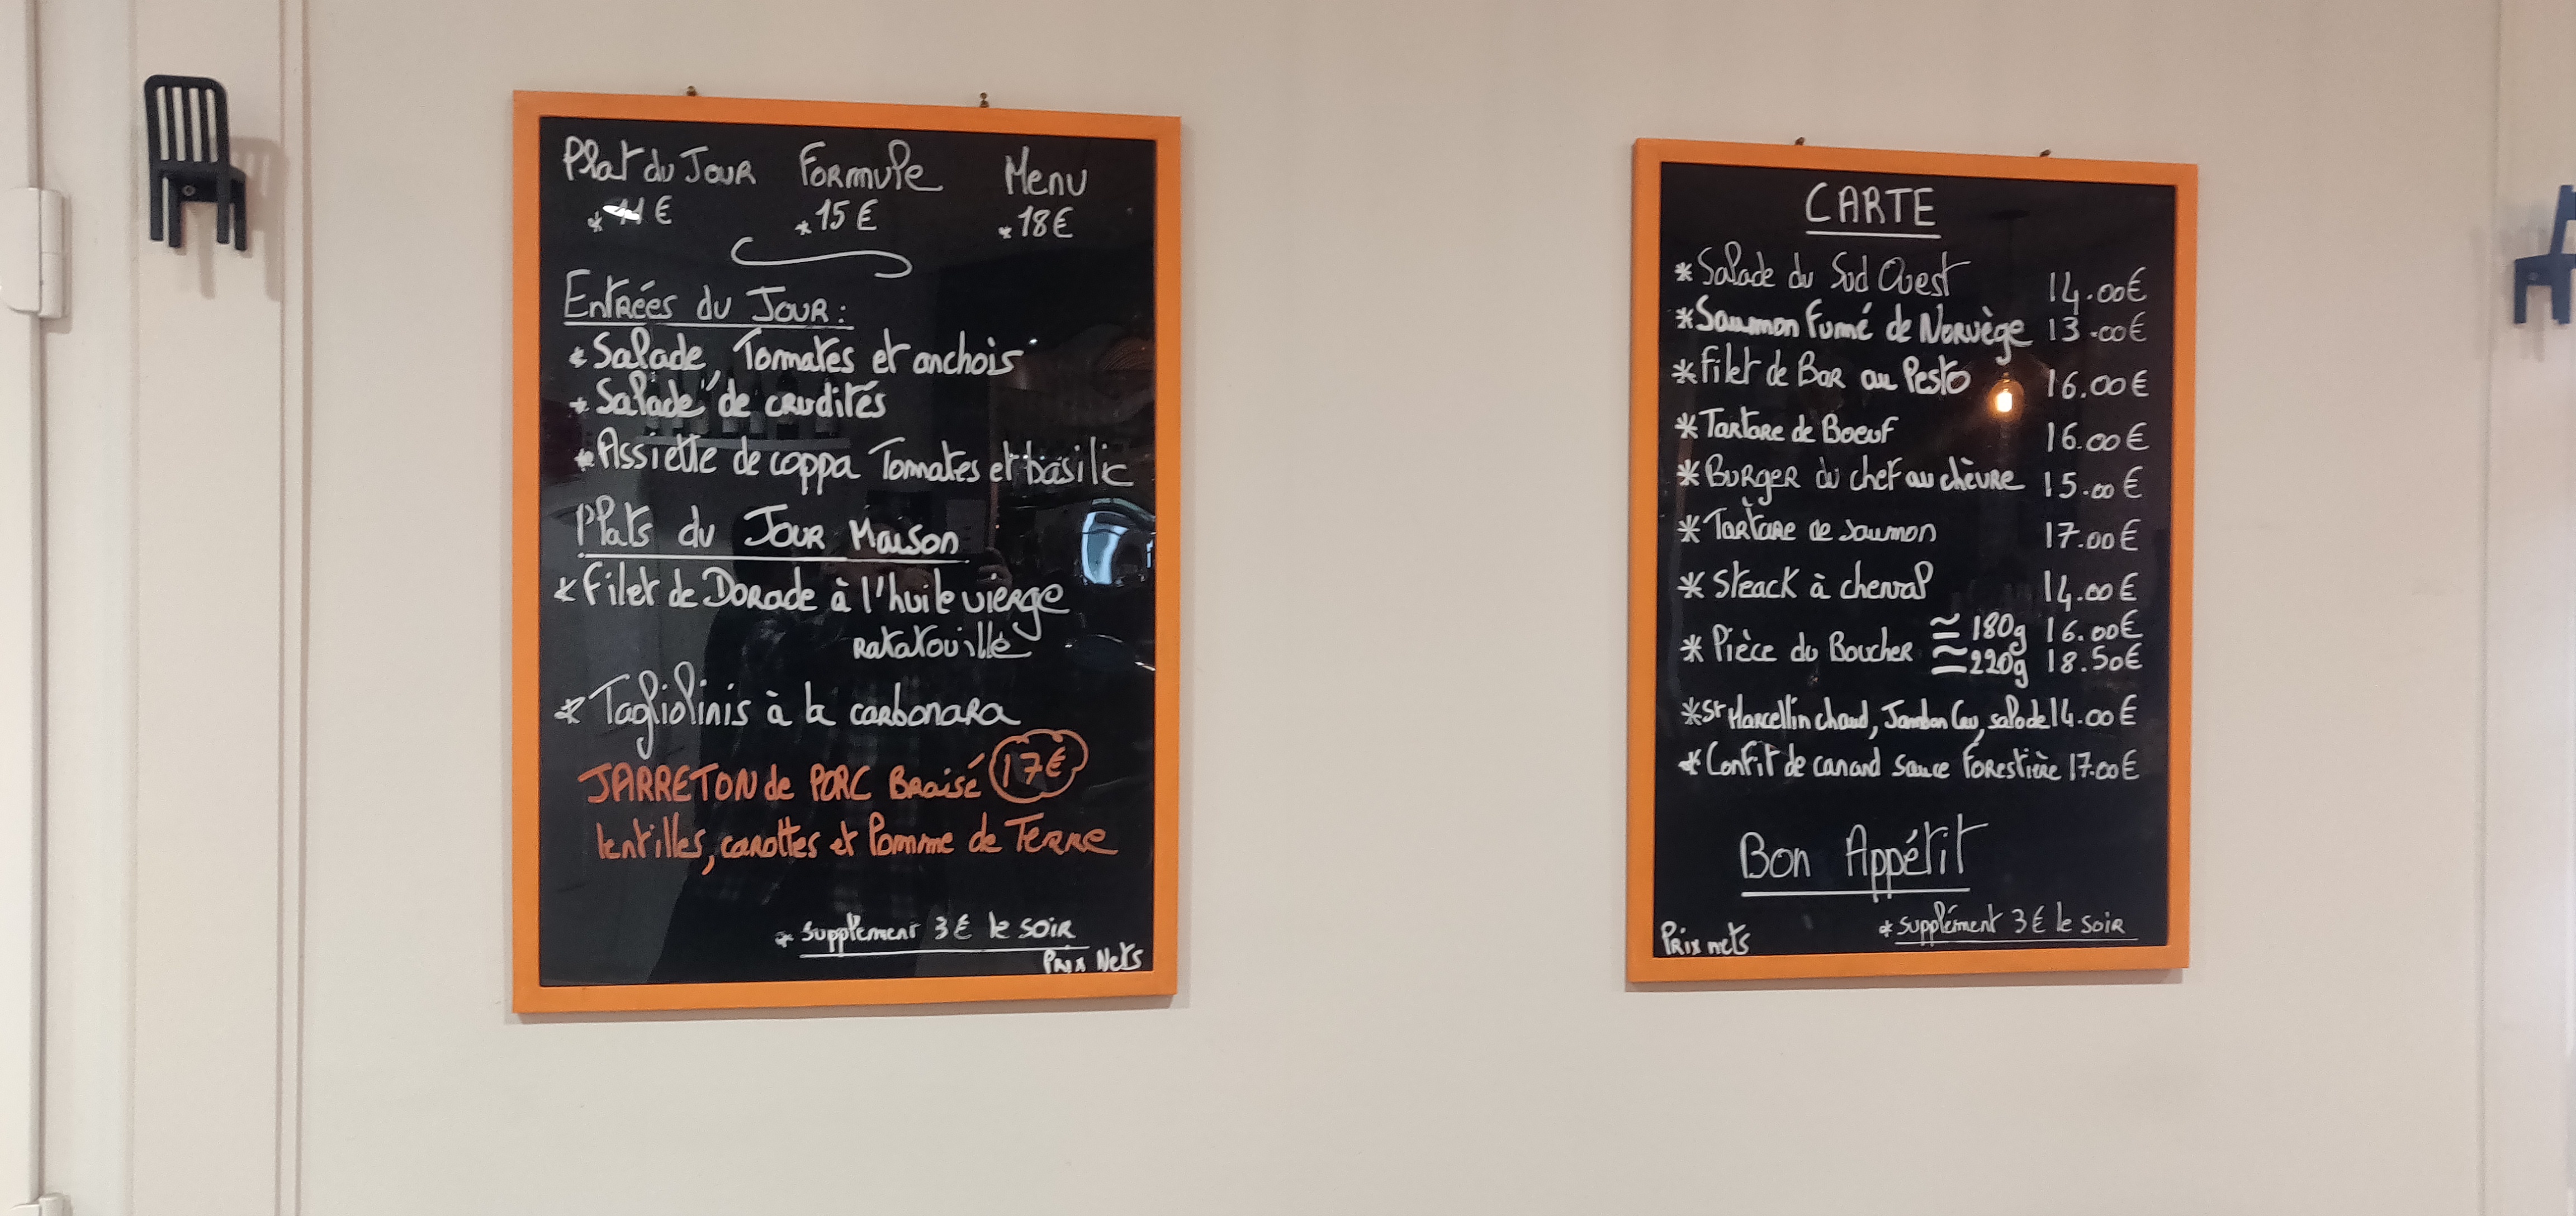 Plat du Jour Formule Menu
* 11€ * 15€ * 18€
Entrées du Jour:
* Salade, Tomates et anchois
* Salade "de crudités
* Assiette de coppa Tomates et basilic
Plats du Jour Maison
* Filet de Dorade à l'huile vierge
Ratatouille
* Tagliolinis à la carbonara
JARRETON de PORC Braisé 17€
lentilles, carottes et Pomme de Terre
* supplément 3€ le soir
Prix Nets
CARTE
* Salade du Sud Ouest 14.00€
* Saumon Fumé de Norvège 13.00€
* Filet de Bar au Pesto 16.00€
* Tartare de Boeuf 16.00€
* Burger du chef au chèvre 15.00€
* Tartare de saumon 17.00€
* Steack à cheval 14.00€
* Pièce du Boucher ≃ 180g 16.00€
≃ 220g 18.50€
* St Marcellin chaud, Jambon Cru, salade 14.00€
* Confit de canard sauce Forestière 17.00€
Bon Appétit
* supplément 3€ le soir
Prix nets